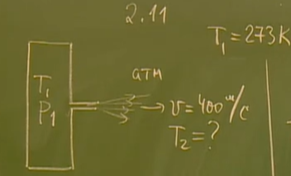 2.11
T₁ = 273K
T₁
P₁
атм
υ = 400 м/с
T₂ = ?